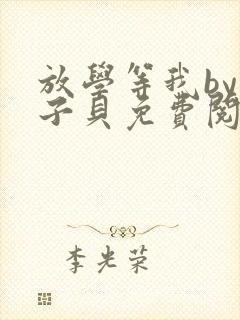 放學等我by
子貝免費閱
李光荣